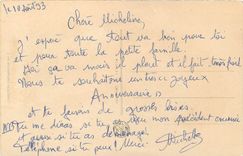 le 10 Août 93
Chère Micheline,
J'espère que tout va bon pour toi
et pour toute la petite famille.
Ici ça va mais il pleut et il fait très froid
Nous te souhaitons un très joyeux
Anniversaire
et te faisons de grosses bises.
Tu me diras si tu as reçu mon précédent courrier
et aussi si tu as déménagé!
Téléphone si tu peux! Merci!